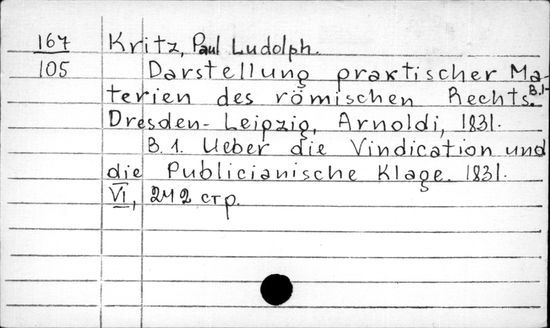 167 Kritz, Paul Ludolph.
105 Darstellung praktischer Ma-
terien des römischen Rechts. B.1-
Dresden-Leipzig, Arnoldi, 1831.
B. 1. Ueber die Vindication und
die Publicianische Klage. 1831.
VI, 242 стр.